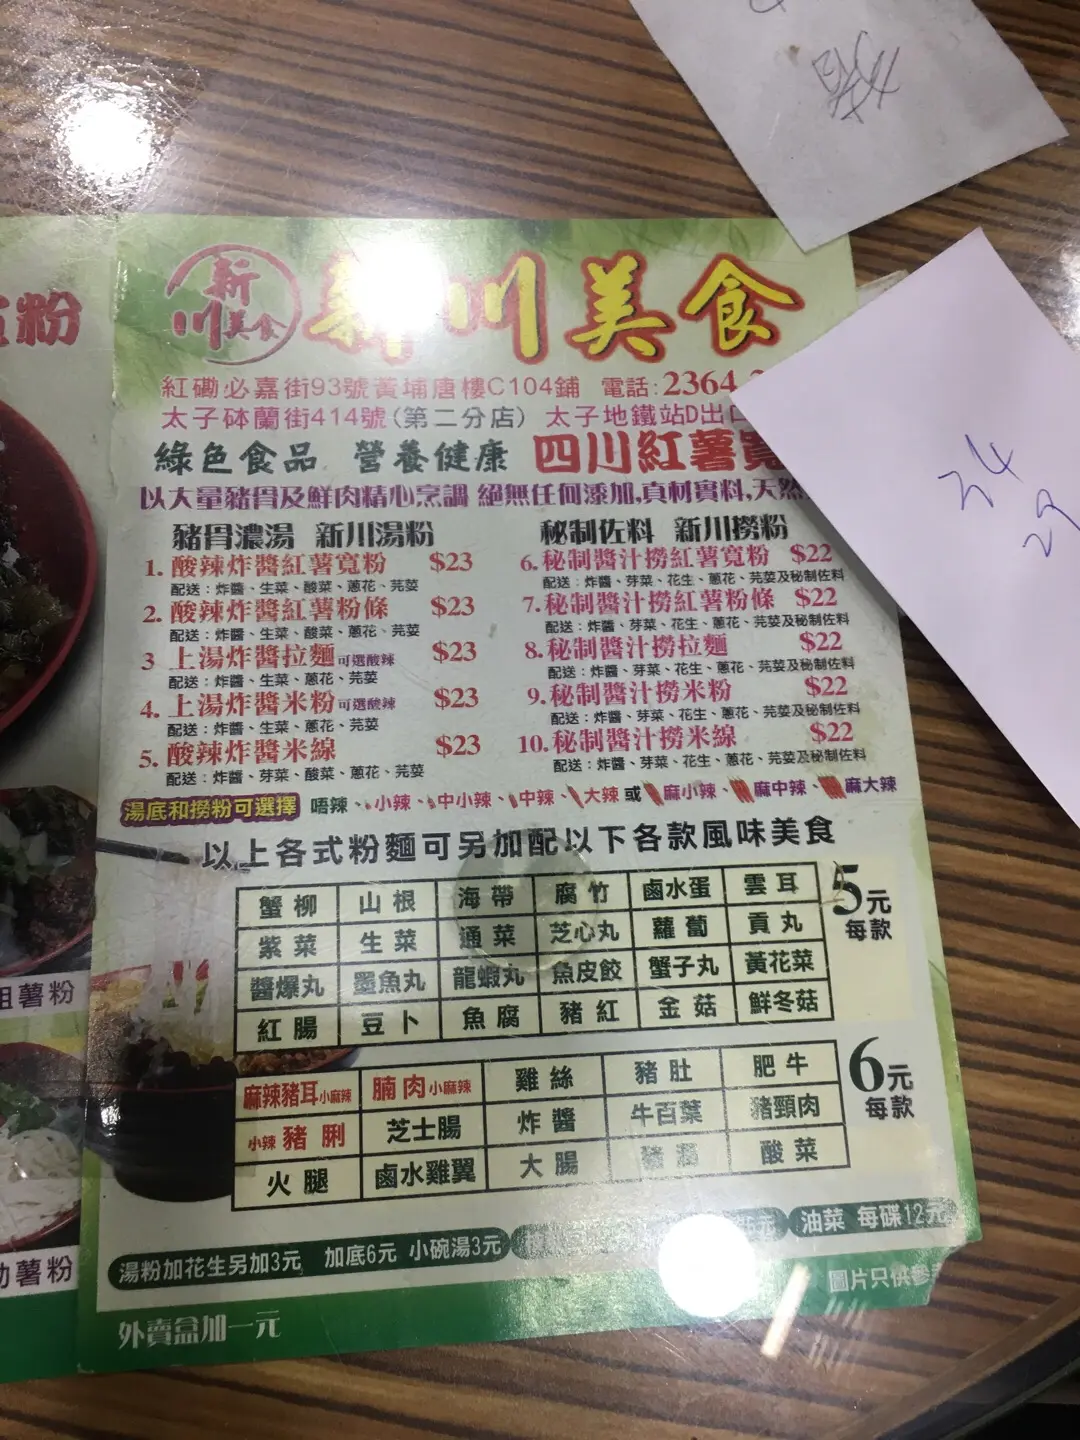 粉
新
川美食
新川美食
紅磡必嘉街93號黃埔唐樓C104鋪 電話:2364
太子砵蘭街414號(第二分店) 太子地鐵站D出口
綠色食品 營養健康 四川紅薯寬
以大量豬骨及鮮肉精心烹調 絕無任何添加,真材實料,天然
豬骨濃湯 新川湯粉
1. 酸辣炸醬紅薯寬粉 $23
配送：炸醬、生菜、酸菜、蔥花、芫荽
2. 酸辣炸醬紅薯粉條 $23
配送：炸醬、生菜、酸菜、蔥花、芫荽
3 上湯炸醬拉麵可選酸辣 $23
配送：炸醬、生菜、蔥花、芫荽
4. 上湯炸醬米粉可選酸辣 $23
配送：炸醬、生菜、蔥花、芫荽
5. 酸辣炸醬米線 $23
配送：炸醬、芽菜、酸菜、蔥花、芫荽
秘制佐料 新川撈粉
6. 秘制醬汁撈紅薯寬粉 $22
配送：炸醬、芽菜、花生、蔥花、芫荽及秘制佐料
7. 秘制醬汁撈紅薯粉條 $22
配送：炸醬、芽菜、花生、蔥花、芫荽及秘制佐料
8. 秘制醬汁撈拉麵 $22
配送：炸醬、芽菜、花生、蔥花、芫荽及秘制佐料
9. 秘制醬汁撈米粉 $22
配送：炸醬、芽菜、花生、蔥花、芫荽及秘制佐料
10. 秘制醬汁撈米線 $22
配送：炸醬、芽菜、花生、蔥花、芫荽及秘制佐料
湯底和撈粉可選擇 唔辣、小辣、中小辣、中辣、大辣 或 麻小辣、麻中辣、麻大辣
以上各式粉麵可另加配以下各款風味美食
蟹柳 山根 海帶 腐竹 鹵水蛋 雲耳
紫菜 生菜 通菜 芝心丸 蘿蔔 貢丸
醬爆丸 墨魚丸 龍蝦丸 魚皮餃 蟹子丸 黃花菜
紅腸 豆卜 魚腐 豬紅 金菇 鮮冬菇
5元
每款
麻辣豬耳小麻辣 腩肉小麻辣 雞絲 豬肚 肥牛
小辣 豬脷 芝士腸 炸醬 牛百葉 豬頸肉
火腿 鹵水雞翼 大腸 酸菜
6元
每款
湯粉加花生另加3元 加底6元 小碗湯3元
油菜 每碟12元
圖片只供參
外賣盒加一元
薯粉
薯粉
24
29